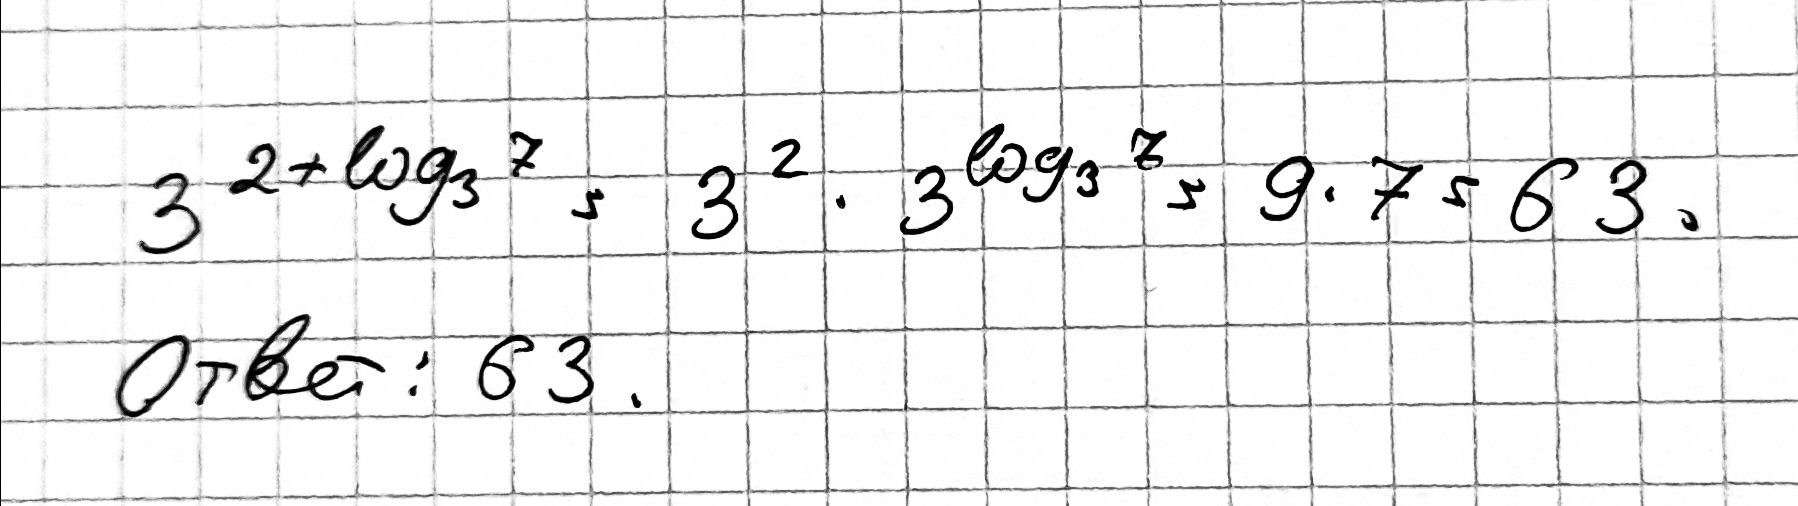 3^{2+log_3 7} = 3^2 · 3^{log_3 7} = 9 · 7 = 63.
Ответ: 63.